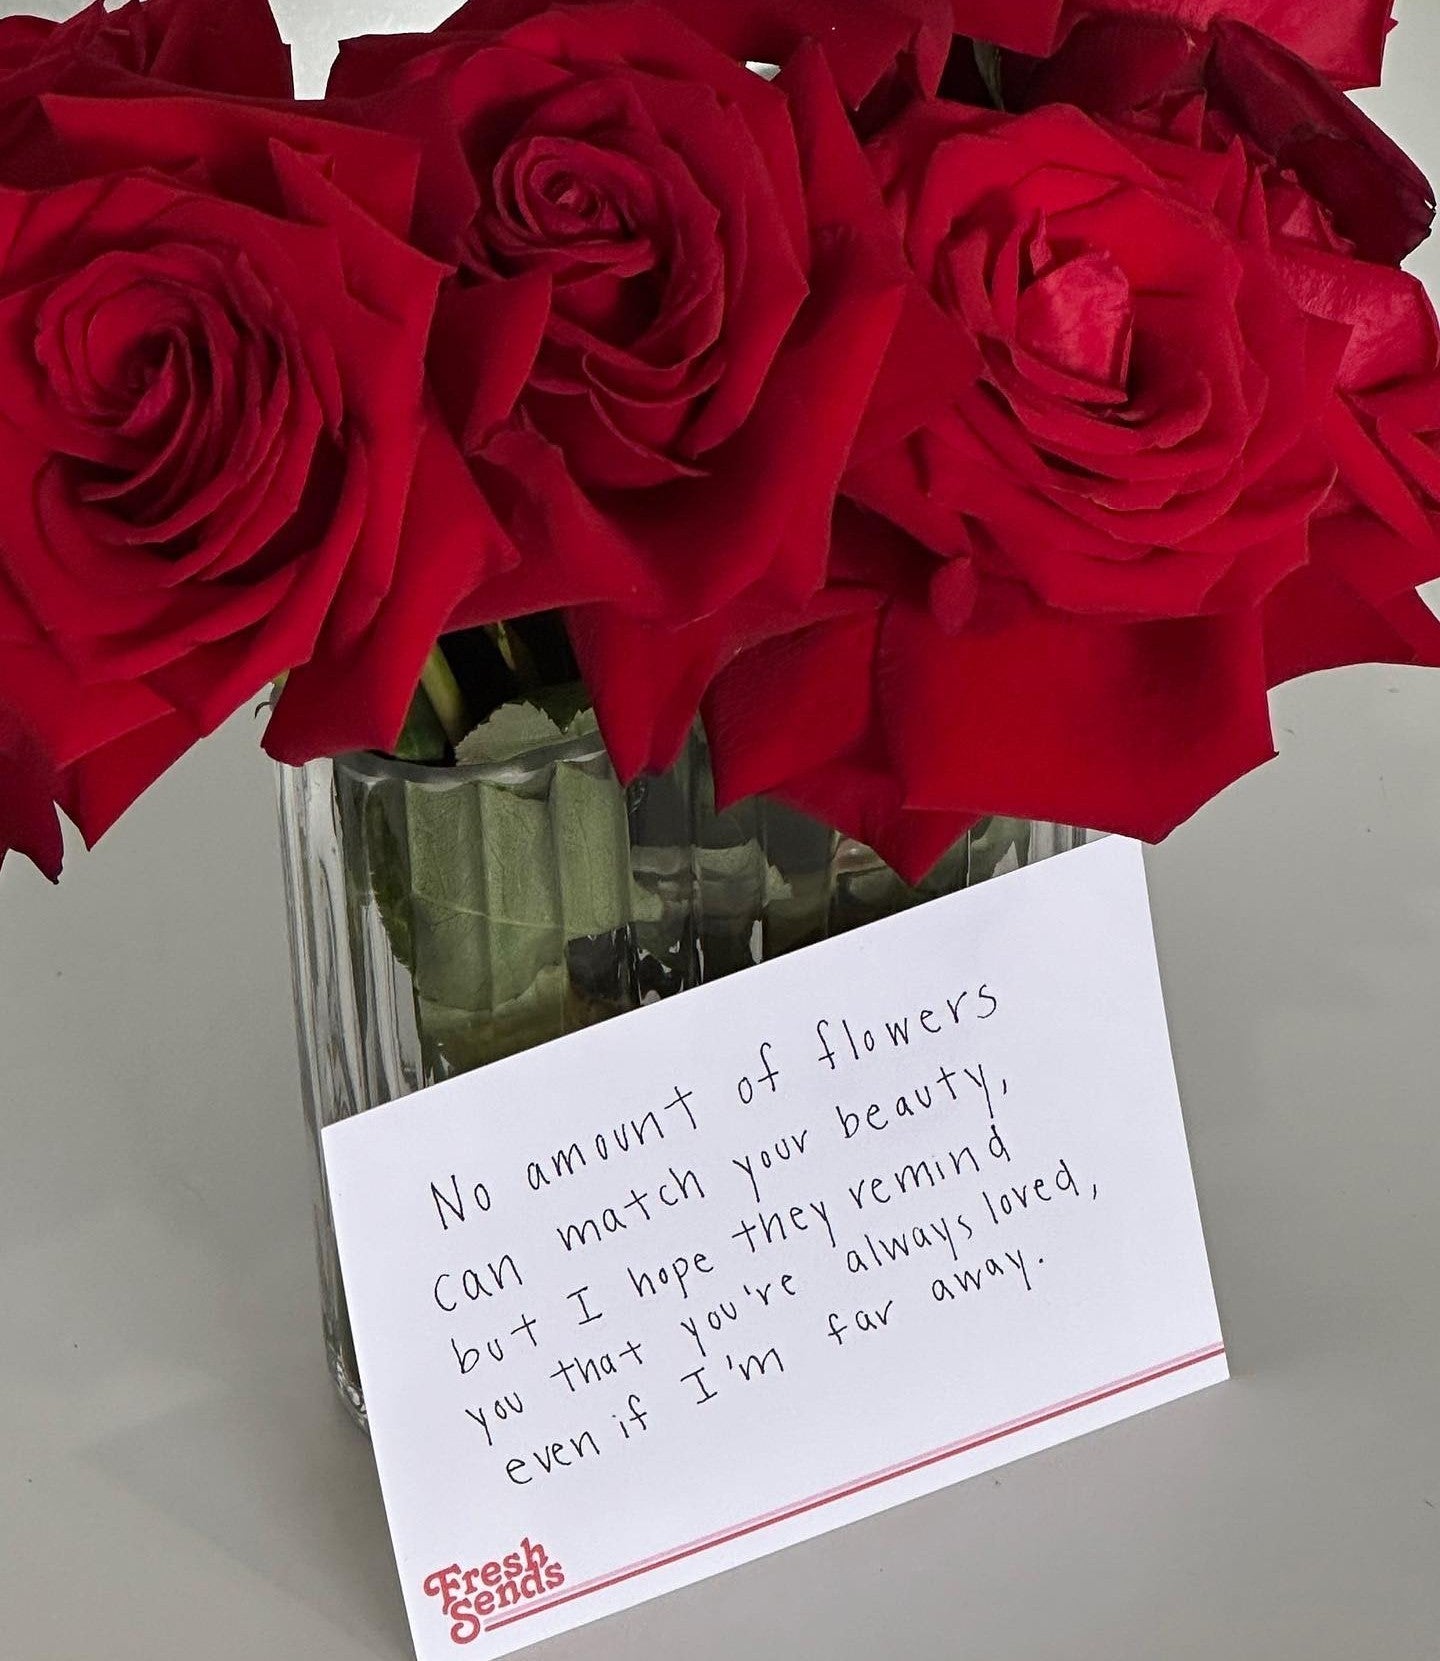 No amount of flowers
can match your beauty,
but I hope they remind
you that you're always loved,
even if I'm far away.
Fresh
Sends